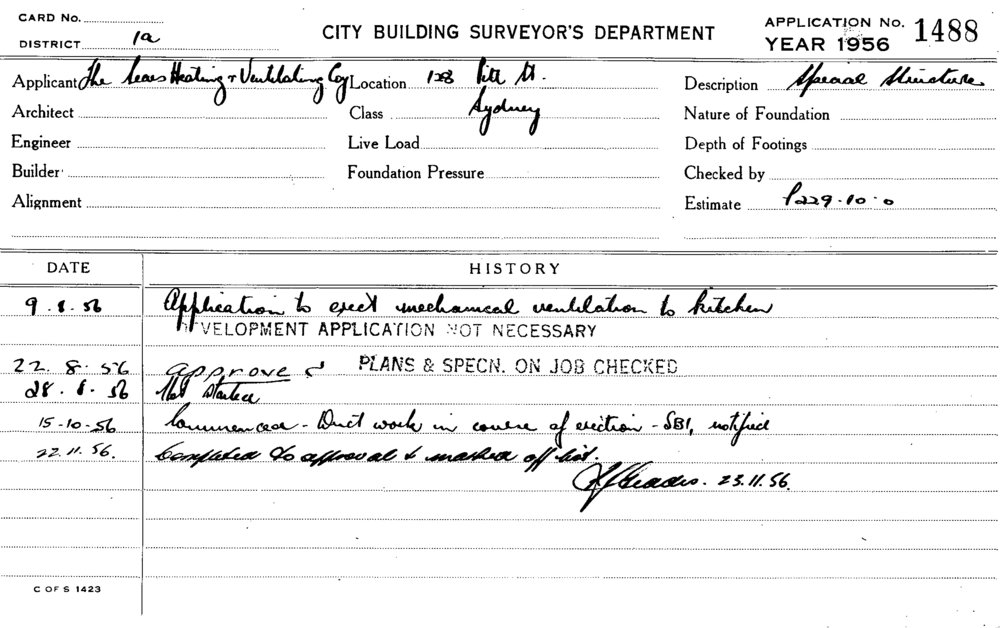 CARD No.
DISTRICT 1a
CITY BUILDING SURVEYOR'S DEPARTMENT
APPLICATION No. 1488
YEAR 1956
Applicant The Sears Heating & Ventilating Coy
Location 128 Pitt St.
Description Special Structure
Architect
Class Sydney
Nature of Foundation
Engineer
Live Load
Depth of Footings
Builder
Foundation Pressure
Checked by
Alignment
Estimate £229.10.0
DATE HISTORY
9.8.56 Application to erect mechanical ventilation to kitchen
DEVELOPMENT APPLICATION NOT NECESSARY
22.8.56 approved PLANS & SPECN. ON JOB CHECKED
28.8.56 Not Started
15-10-56 Commenced - Duct work in course of erection - SBI, notified
22.11.56. Completed to approval & marked off list.
23.11.56.
C OF S 1423